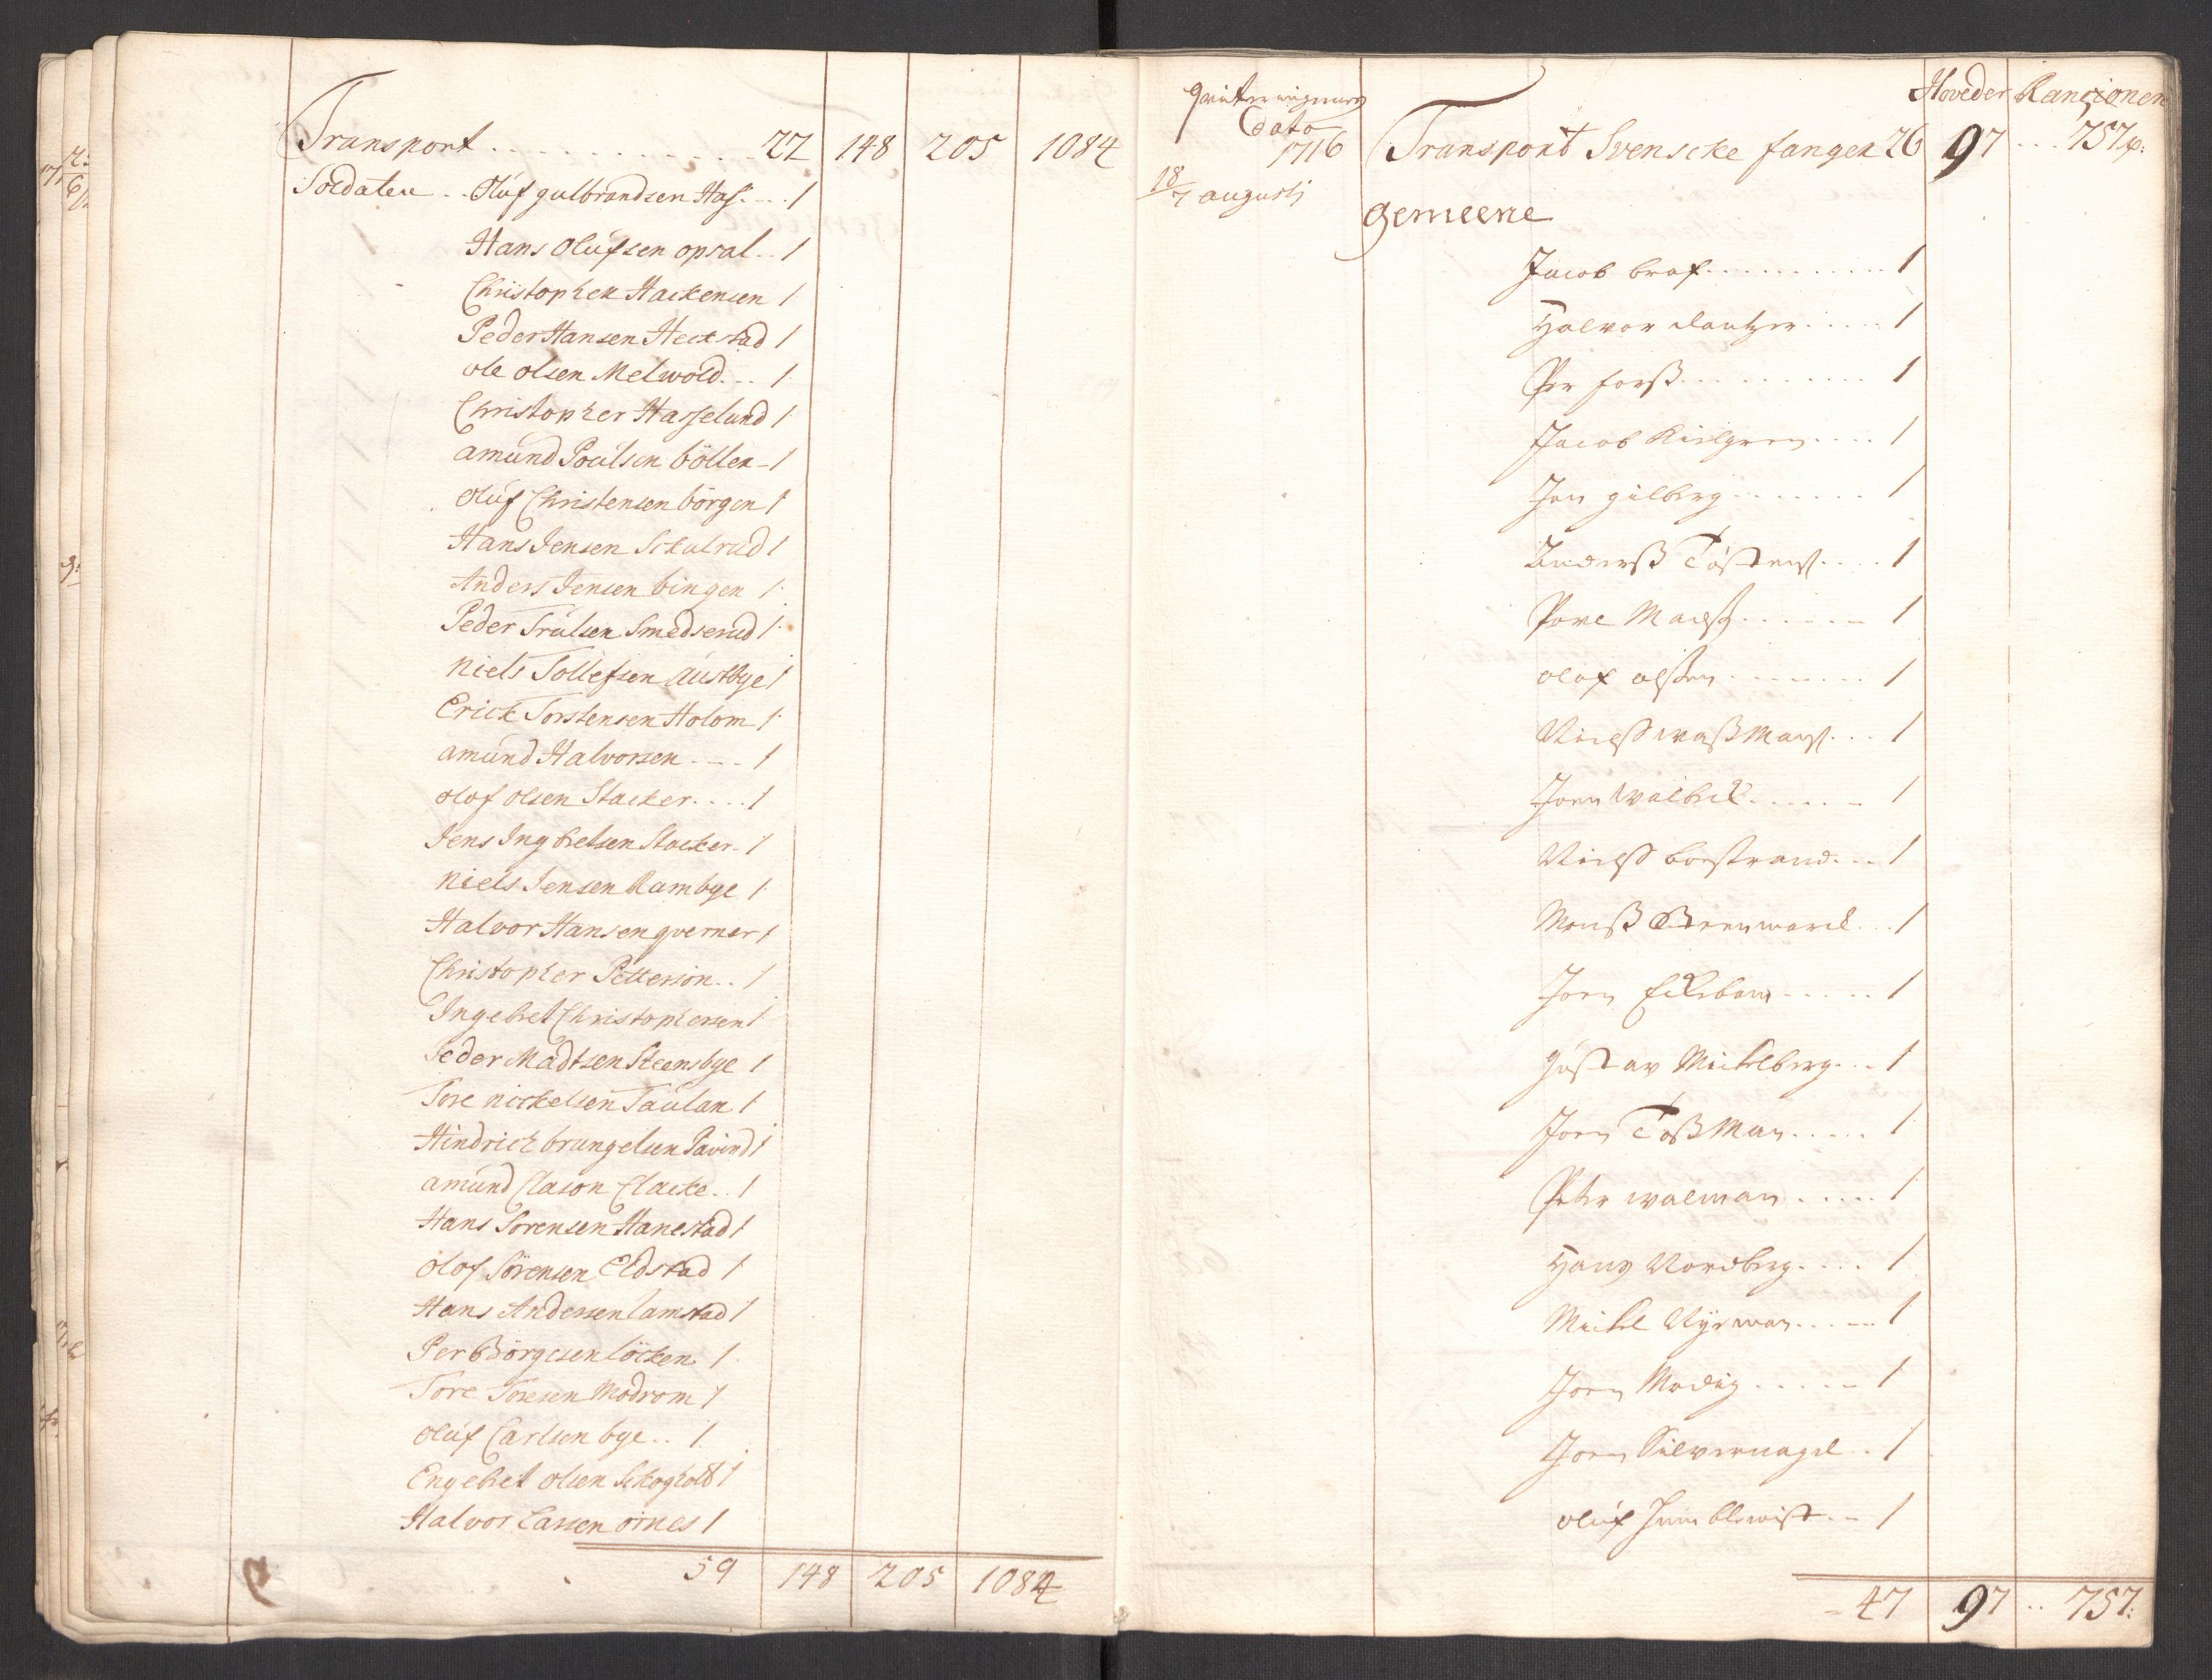 Transport . . . . . . . . . . . 22 148 205 1084
Soldaten . . Oluf gulbrandsen Has . . . 1
Hans Olufsen opsal . . 1
Christopher Hackensen 1
Peder Hansen Heckstad 1
ole olsen Melwold . . . 1
Christopher Hasselund 1
amund Poulsen böller - 1
Oluf Christensen börgen 1
Hans Jensen Sckulrud 1
Anders Jensen bingen 1
Peder Trulsen Smedserud 1
Niels Tollefsen Austbye 1
Erick Torstensen Holom 1
amund Halvorsen . . . . 1
olof olsen Stacker . . . . 1
Jens Ingbretsen Stacker . 1
Niels Jensen Rambye 1
Halvor Hansen gverner 1
Christopher Petterson . . 1
Ingebret Christophersen 1
Peder Madtsen Steensbye 1
Tore nickelsen Taulan 1
Hindrich brungelsen Pavind 1
amund Clason Clacke . . 1
Hans Sörensen Hanestad 1
olof Sörensen Eldstad 1
Hans Andersen lamstad 1
Per Börgesen löcken 1
Tore Toresen Modrom 1
Oluf Carlsen bye . . 1
Engebret olsen Sckogholt 1
Halvor Larsen örnes 1
59 148 205 1084
Dato
1716
18/7 augusti
Hoveder Rangionen
Transport Svenscke fangen 26 97 . . . 757
gemeene
Jacob braf . . . . . . . . . . . 1
Halvor . . . . . 1
Per forß . . . . . . . . . . 1
Jacob Kielgren . . . . 1
Jon gilberg . . . . . . . 1
Anderß Töstens . . . . 1
Pove Maeß . . . . . . 1
olof olßen . . . . . . . 1
Nielß waßMans . . . 1
Joen Walbeck . . . . . . 1
Nielß borstrand . . . 1
Monß . . . 1
Joen Eckebom . . . . . 1
Gustav Michelberg . . . 1
Joen ToßMan . . . . . 1
Peter walman . . . . . 1
Hans Nordberg . . . . 1
Michel Nyeman . . . . . 1
Joen Modig . . . . . 1
Joen Silvernagel . . 1
oluf . . . 1
47 97 . . 757